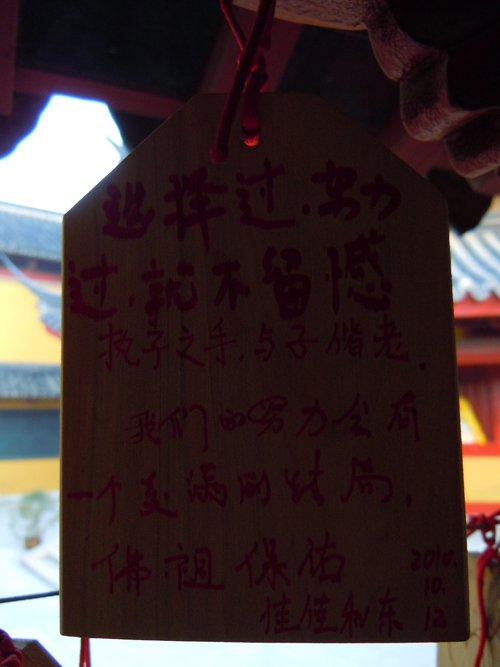 选择过.努力
过.就不留憾
执子之手.与子偕老.
我们的努力会有
一个美满的结局.
佛祖保佑
2010.
10.
佳佳和东
12